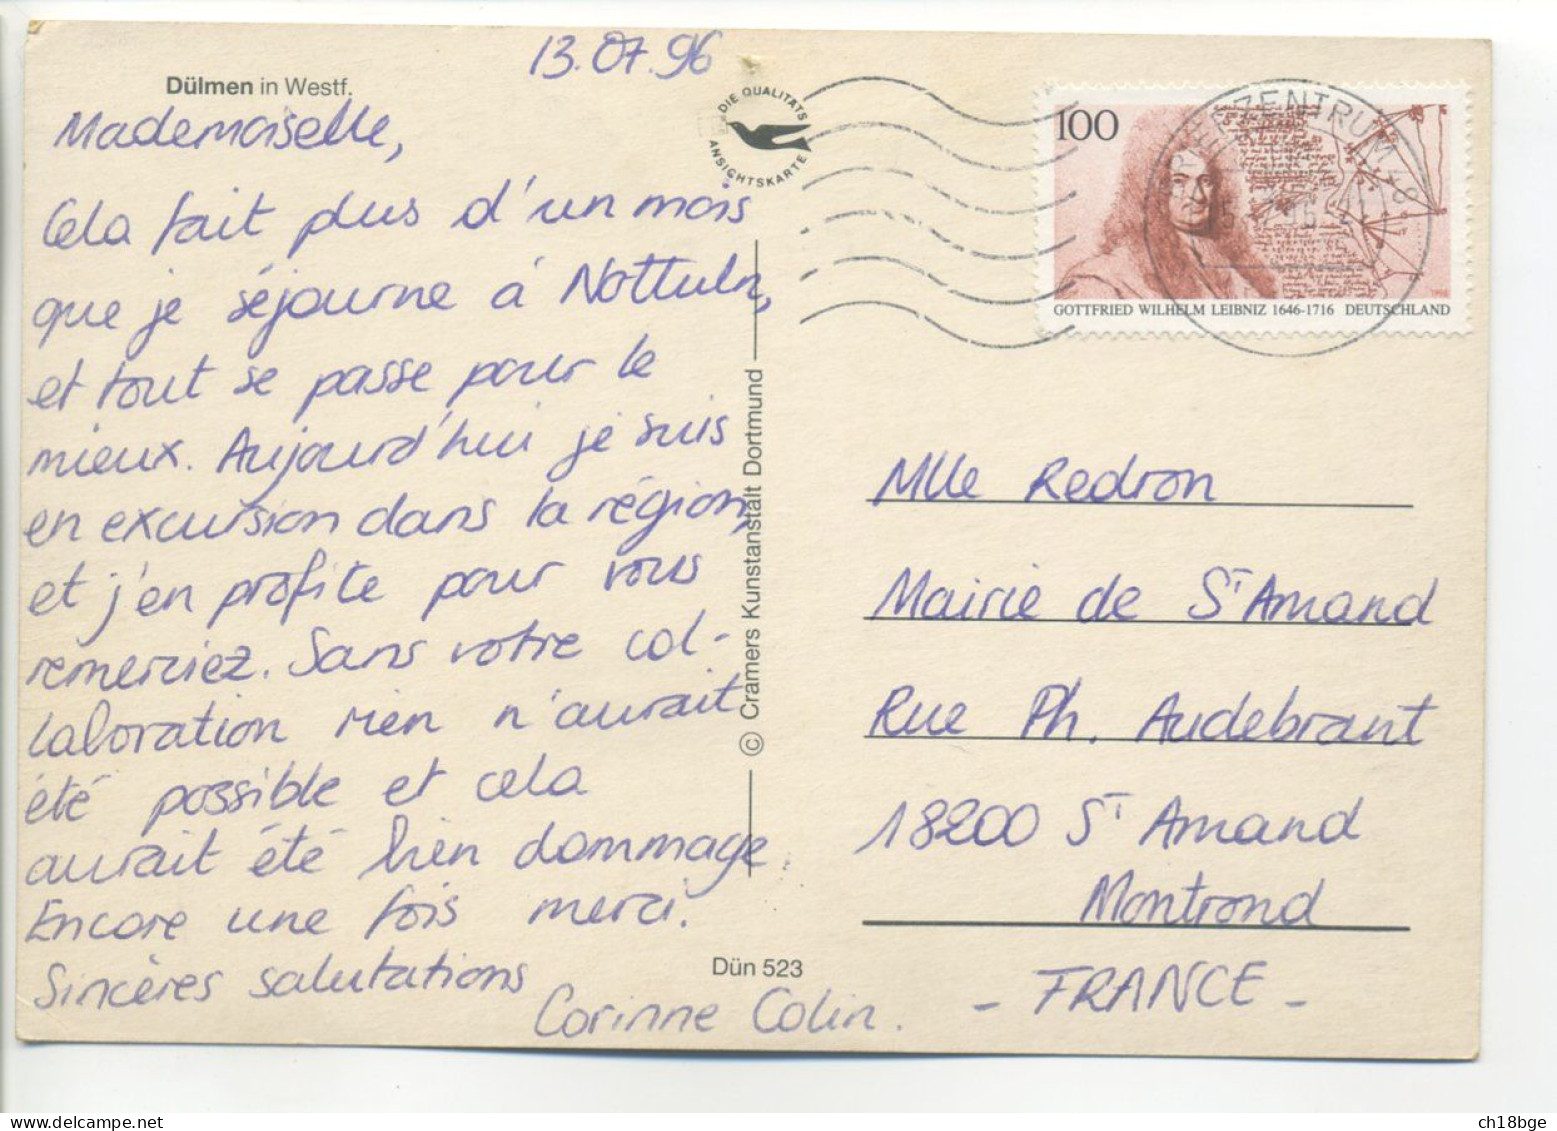 13.07.96
Dülmen in Westf.
Mademoiselle,
Cela fait plus d'un mois
que je séjourne à Nottuln,
et tout se passe pour le
mieux. Aujourd'hui je suis
en excursion dans la région,
et j'en profite pour vous
remerciez. Sans votre col-
laboration rien n'aurait
été possible et cela
aurait été bien dommage.
Encore une fois merci.
Sincères salutations
Corinne Colin.
DIE QUALITÄTS
ANSICHTSKARTE
© Cramers Kunstanstalt Dortmund
Dün 523
100
GOTTFRIED WILHELM LEIBNIZ 1646-1716 DEUTSCHLAND
BRIEFZENTRUM 48
Mlle Redron
Mairie de St Amand
Rue Ph. Audebrant
18200 St Amand
Montrond
- FRANCE -
ch18bge